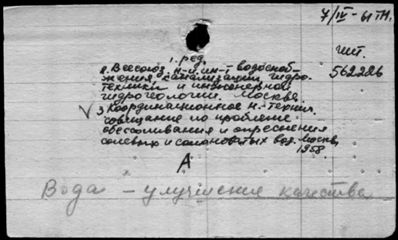 7/IV - 61 тн.
1. ред.
шт.
2. Всесоюз. н-и. ин-т водоснаб-
жения, канализации, гидро-
562226
техники и инженерной
гидрогеологии. Москва.
√ 3. Координационное н.-технич.
совещание по проблеме
обессоливания и опреснения
соленых и солоноватых вод. Москва,
1958.
А
Вода - улучшение качества